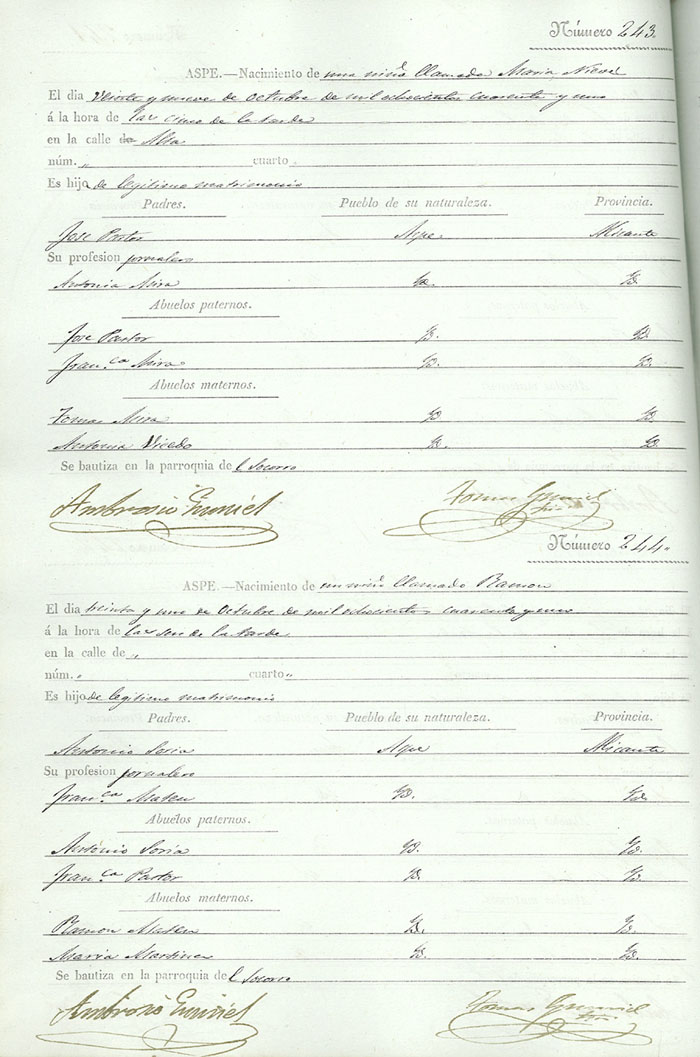 Número 243.
ASPE.—Nacimiento de una niña llamada Maria Nieves
El dia veinte y nueve de octubre de mil ochocientos cuarenta y uno
á la hora de las cinco de la tarde
en la calle de Alta
núm. „ cuarto „
Es hijo de legitimo matrimonio
Padres. Pueblo de su naturaleza. Provincia.
Jose Pastor Aspe Alicante
Su profesion jornalero
Antonia Mira Yd. Yd.
Abuelos paternos.
Jose Pastor Yd. Yd.
Fran.ca Mira Yd. Yd.
Abuelos maternos.
Tomas Mira Yd. Yd.
Antonia Vicedo Yd. Yd.
Se bautiza en la parroquia de l Socorro
Ambrosio
Tomas
Número 244.
ASPE.—Nacimiento de un niño llamado Ramon
El dia treinta y uno de octubre de mil ochocientos cuarenta y uno
á la hora de las seis de la tarde
en la calle de „
núm. „ cuarto „
Es hijo de legitimo matrimonio
Padres. Pueblo de su naturaleza. Provincia.
Antonio Soria Aspe Alicante
Su profesion jornalero
Fran.ca Mateu Yd. Yd.
Abuelos paternos.
Antonio Soria Yd. Yd.
Fran.ca Pastor Yd. Yd.
Abuelos maternos.
Ramon Mateu Yd. Yd.
Maria Martinez Yd. Yd.
Se bautiza en la parroquia de l Socorro
Ambrosio
Tomas